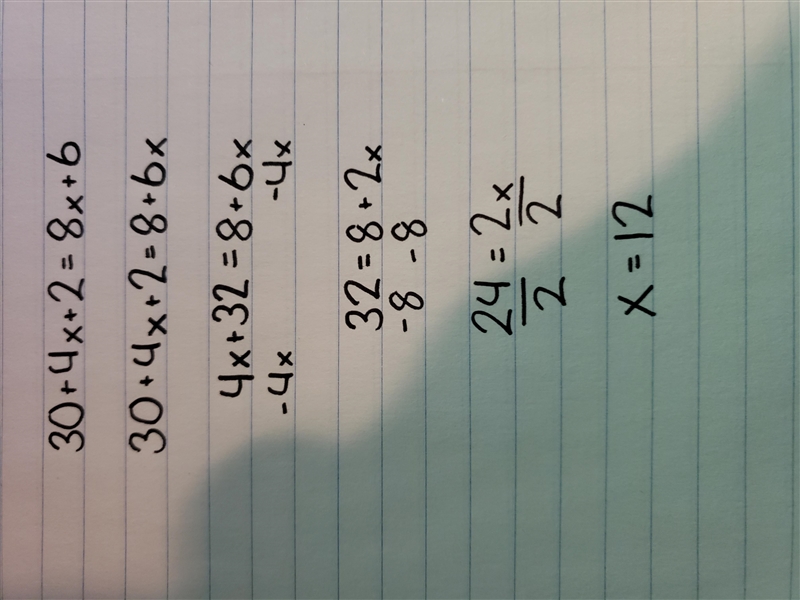 30+4x+2=8x+6
30+4x+2=8+6x
4x+32=8+6x
-4x -4x
32=8+2x
-8 -8
24=2x
2 2
x=12